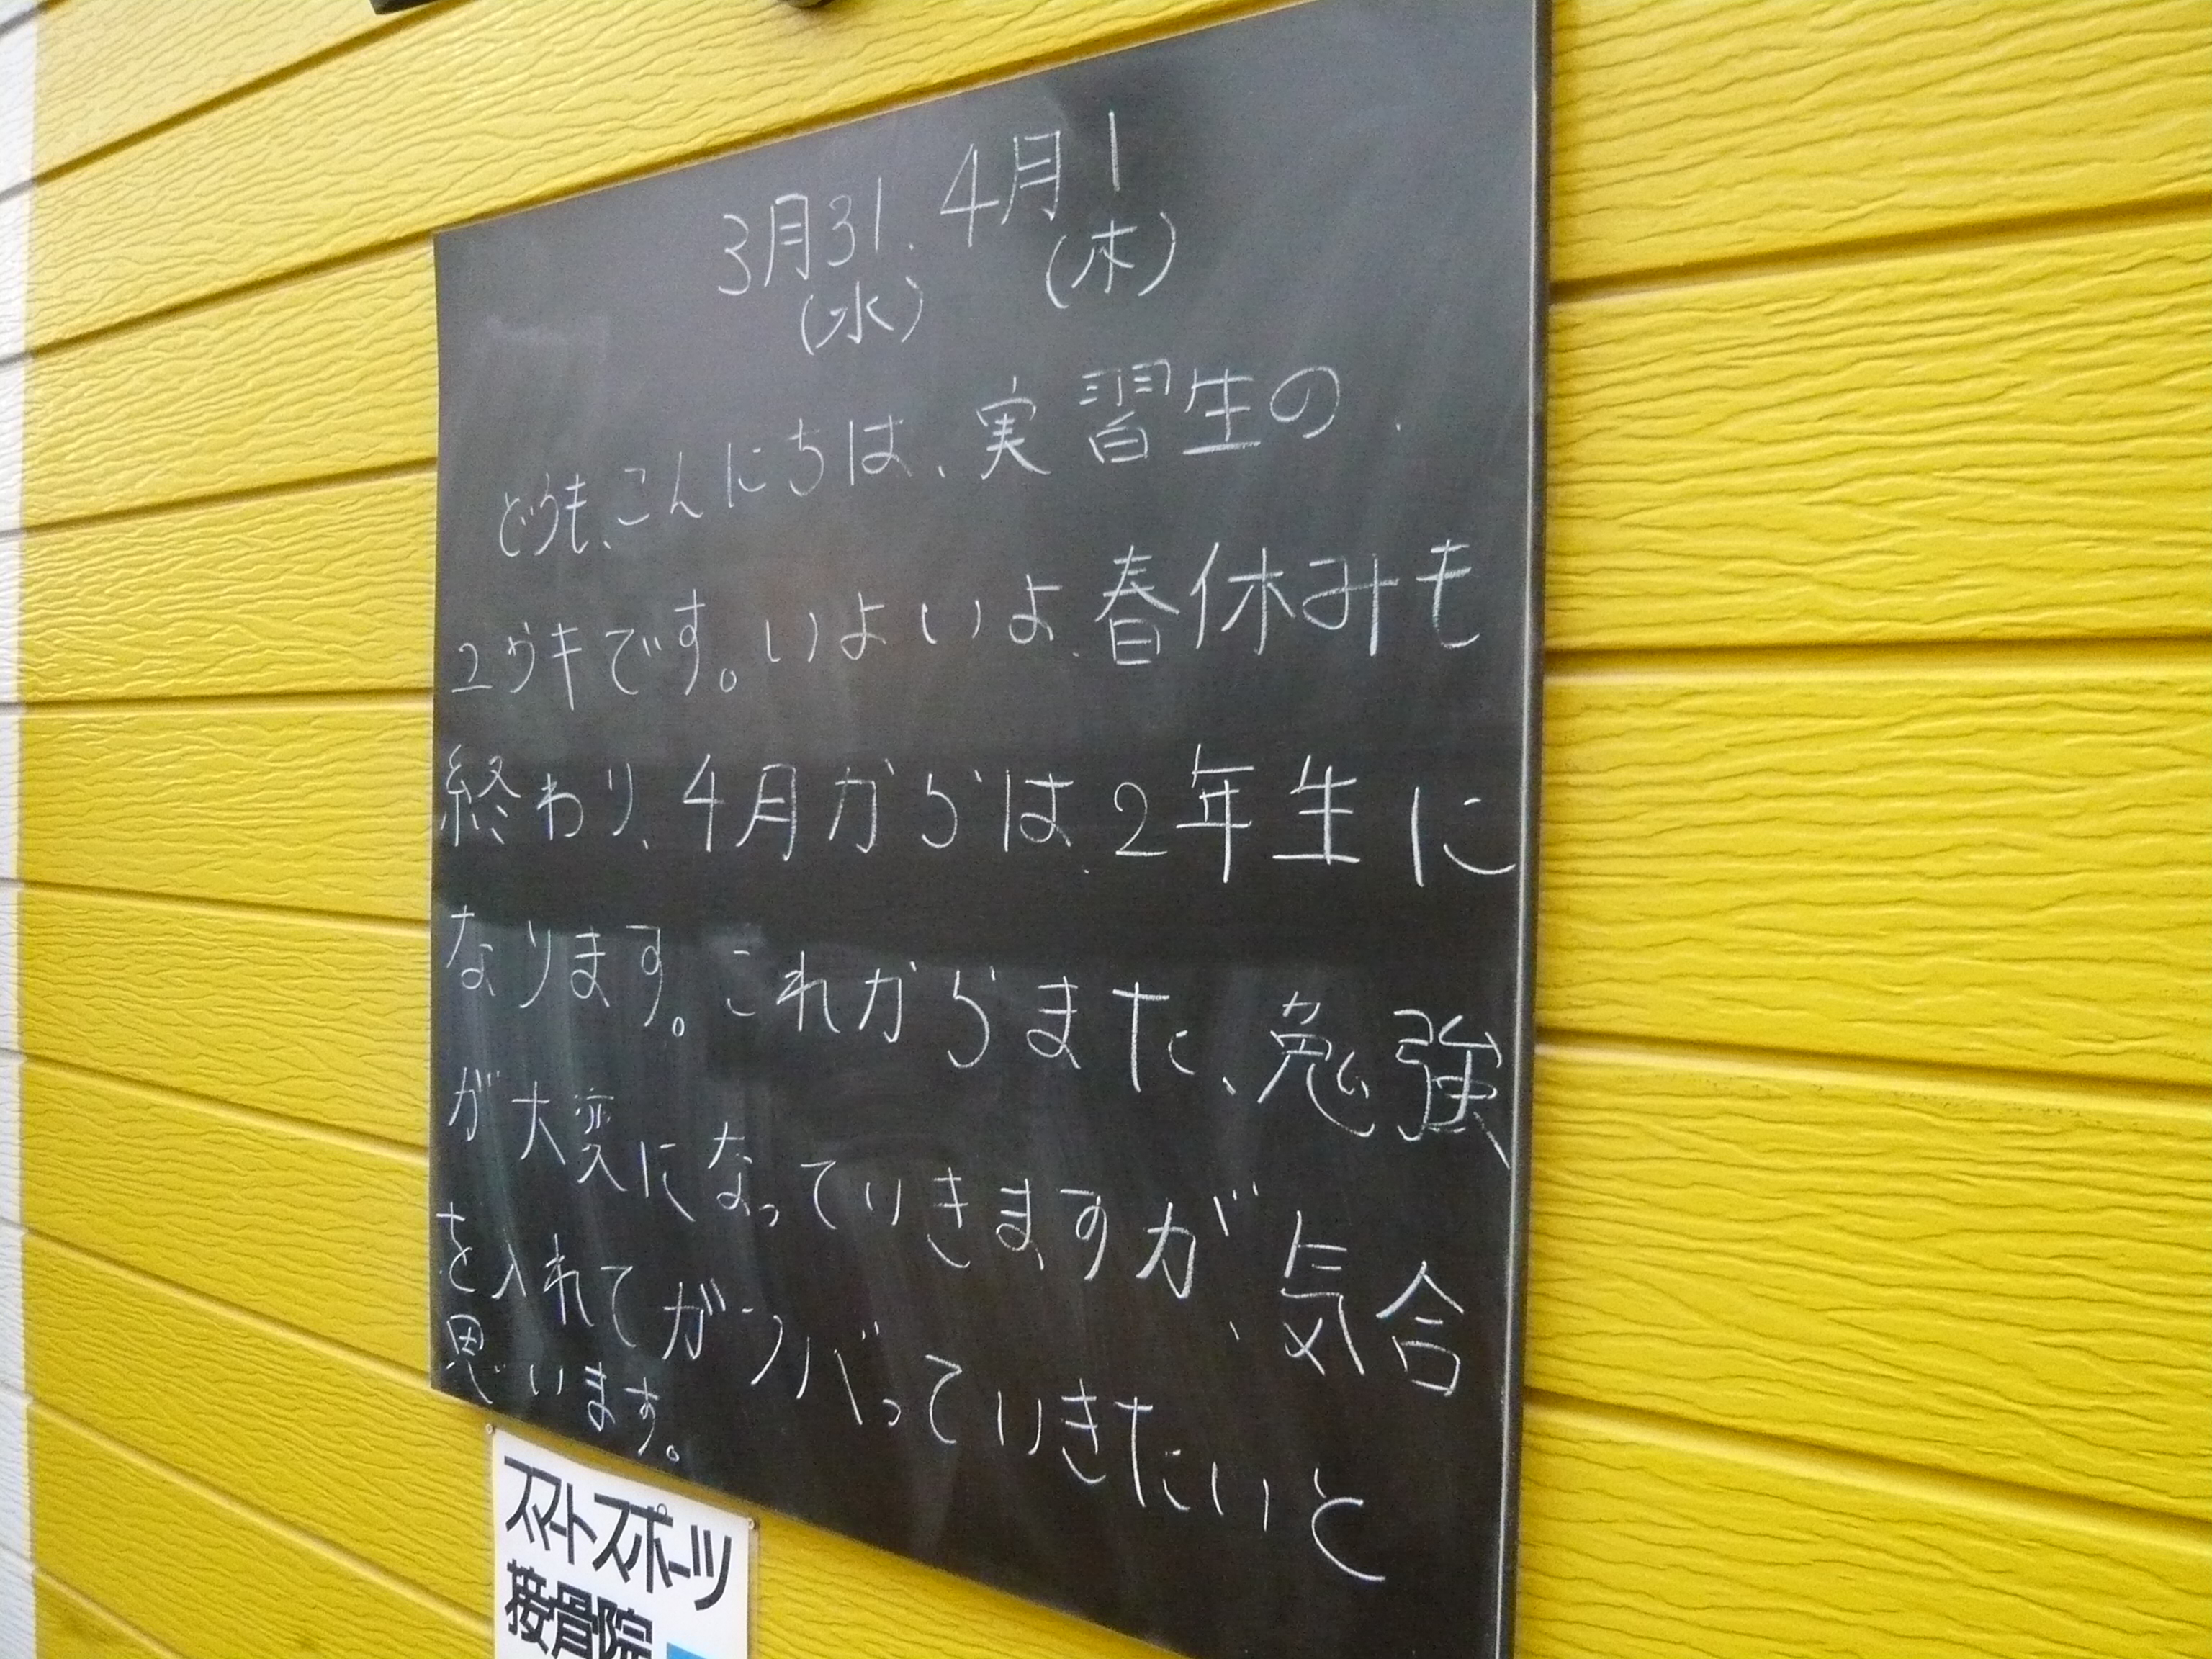 3月31、4月1
(水) (木)
どうも、こんにちは、実習生の
ユウキです。いよいよ、春休みも
終わり、4月からは、2年生に
なります。これからまた、勉強
が大変になっていきますが、気合
を入れてガンバっていきたいと
思います。
スマートスポーツ
接骨院